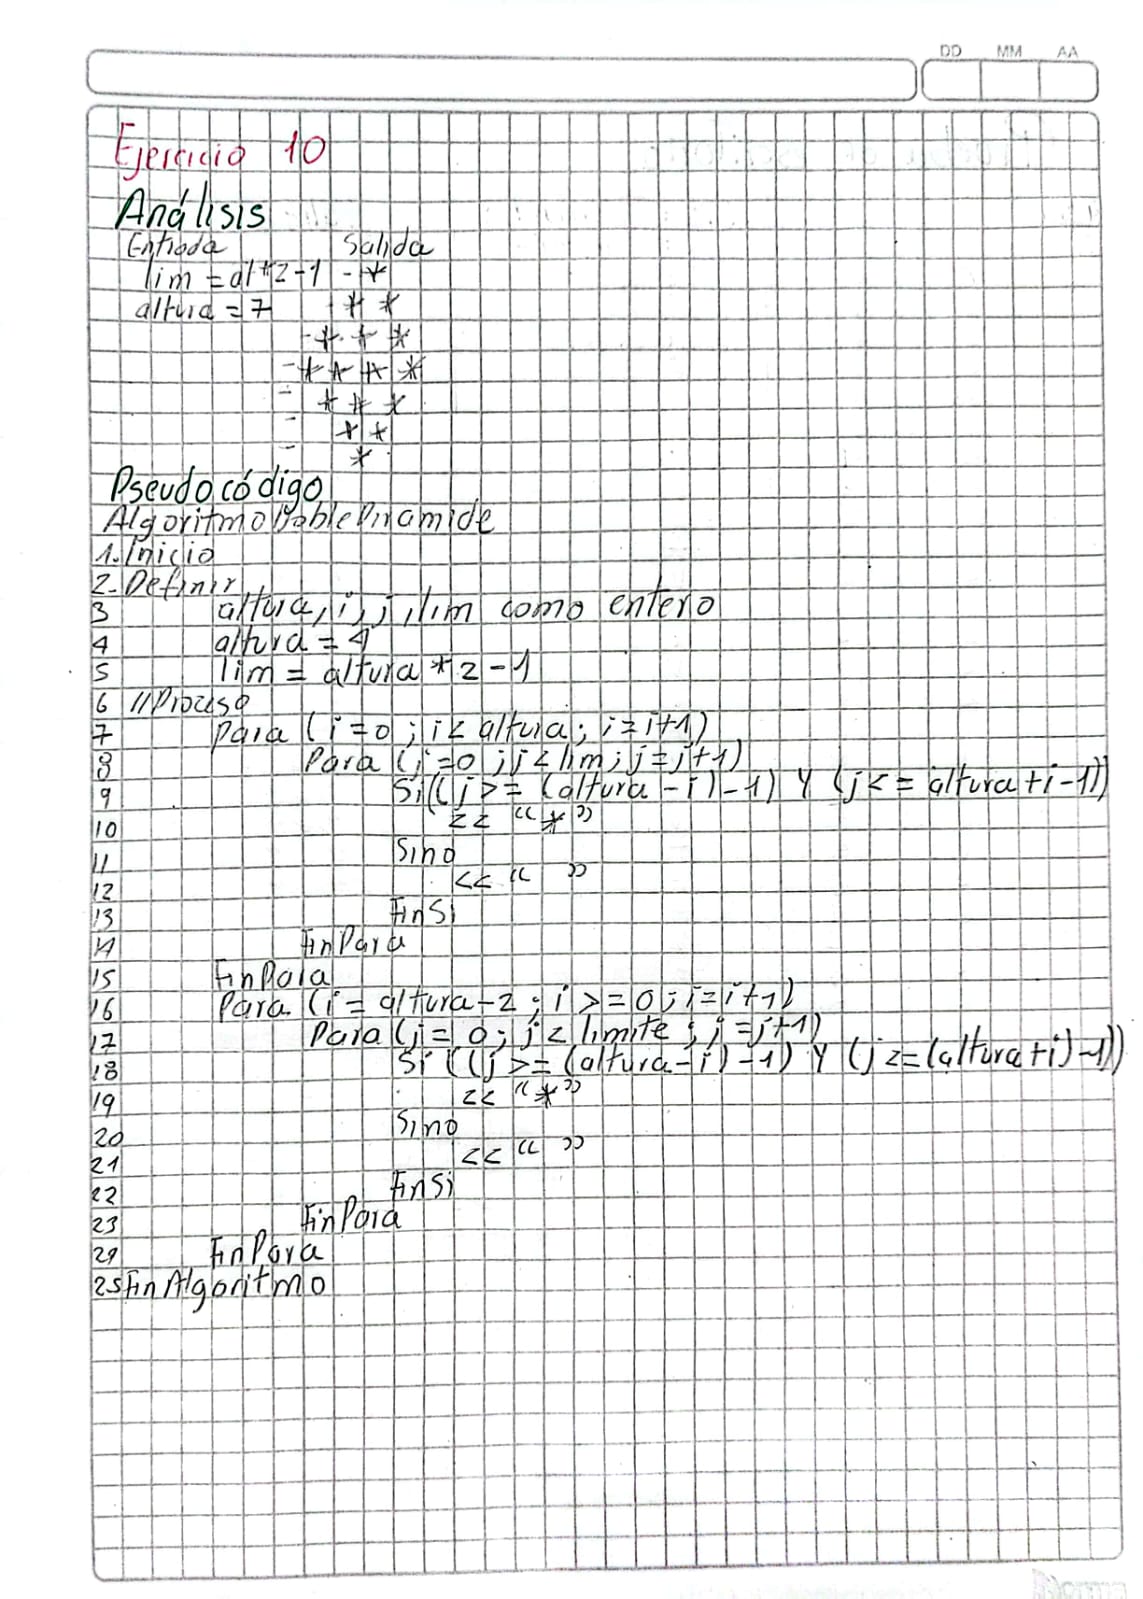 DD MM AA
Ejercicio 10
Análisis
Entrada Salida
lim = al*2-1 - *
altura = 7 * *
- * * *
- * * * *
- * * *
- * *
- *
Pseudocódigo
Algoritmo Doble Piramide
1. Inicio
2. Definir
3 altura, i, j, lim como entero
4 altura = 4
5 lim = altura * 2 - 1
6 // Proceso
7 Para (i=0; i< altura; i=i+1)
8 Para (j=0; j<lim; j=j+1)
9 Si((j>= (altura-i)-1) Y (j<= altura+i-1))
10 << "*"
11 Sino
12 << " "
13 FinSi
14 FinPara
15 FinPara
16 Para (i= altura-2; i>=0; i=i+1)
17 Para (j= 0; j< limite; j=j+1)
18 Si ((j>= (altura-i)-1) Y (j<=(altura+i)-1))
19 << "*"
20 Sino
21 << " "
22 FinSi
23 FinPara
24 FinPara
25 FinAlgoritmo